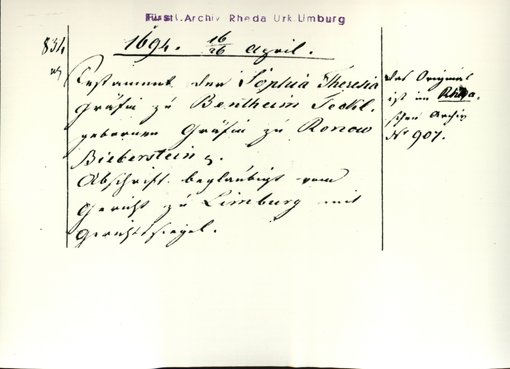 Fürstl. Archiv Rheda Urk. Limburg
834
1694. 16/26 April.
Testament der Sophia Theresia
Gräfin zu Bentheim Teckl.
gebornen Gräfin zu Ronow
Bieberstein
Abschrift beglaubigt vom
Gericht zu Limburg mit
Gerichtssiegel.
das Original
ist im Rheda.
schen Archiv
No 907.